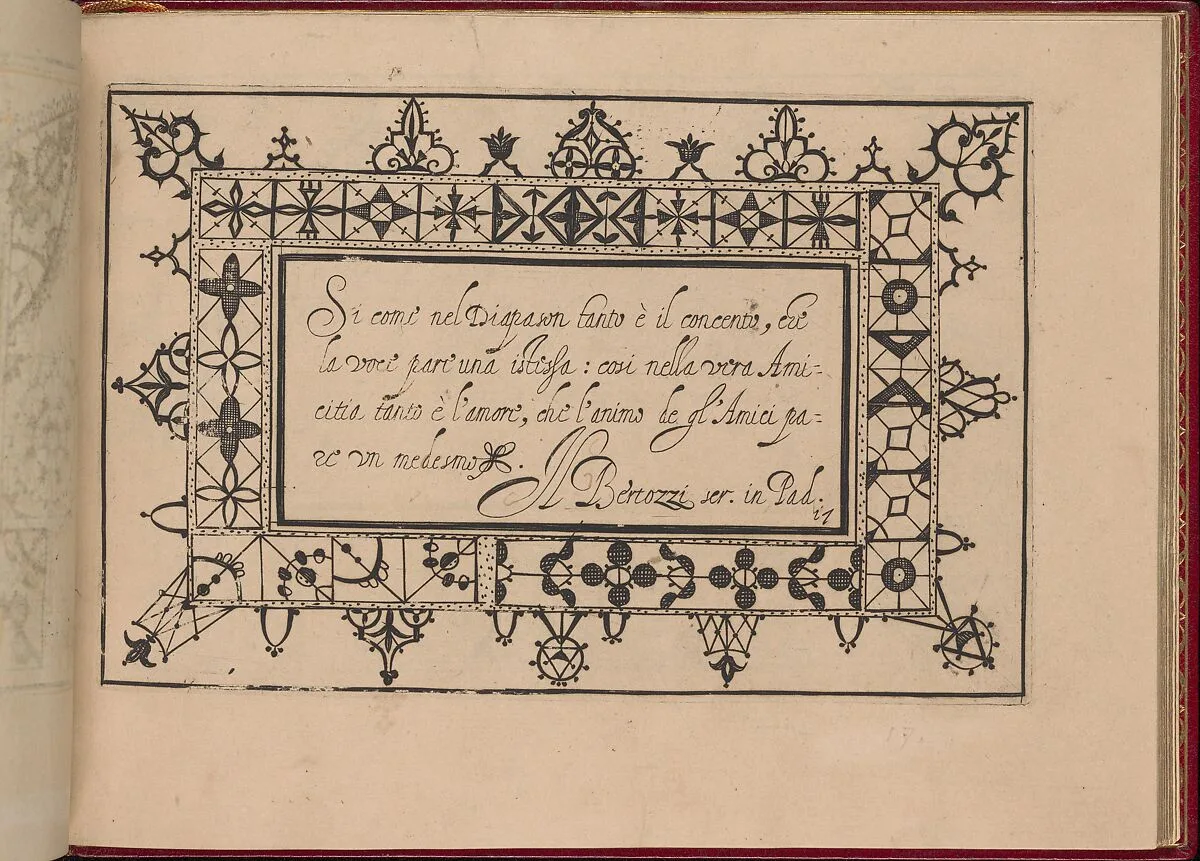 Si come nel Diapason tanto è il concento, che
la voce pare una istessa : cosi nella vera Ami-
citia tanto è l'amore, che l'animo de gl'Amici pa-
re vn medesmo.
Il Bertozzi ser. in Pad.
17
17